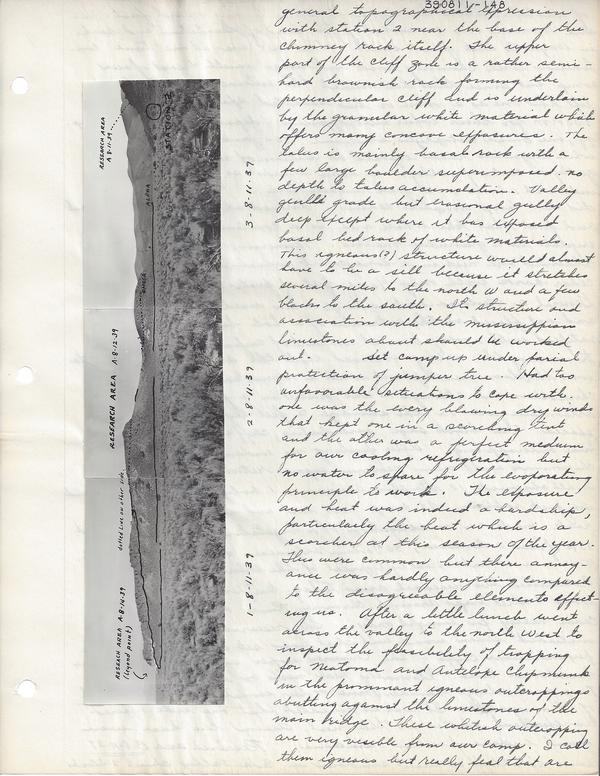 390811-148
general topographical expression
with station 2 near the base of the
chimney rock itself. The upper
part of the cliff zone is a rather semi-
hard brownish rock forming the
perpendicular cliff and is underlain
by the granular white material which
offers many concave exposures. The
talus is mainly basal rock with a
few large boulder superimposed. no
depth to talus accumulation. Valley
gentle grade but erosional gully
deep except where it has exposed
basal bed rock of white materials.
This igneous(?) structure would almost
have to be a sill because it stretches
several miles to the north W and a few
blocks to the south. Its structure and
association with the mississippian
limestones about should be worked
out. Set camp up under parial
protection of juniper tree. Had two
unfavorable situations to cope with.
one was the every blowing dry winds
that kept one in a scorching tent
and the other was a perfect medium
for our cooling refrigeration but
no water to spare for the evaporating
principle to work. The exposure
and heat was indeed a hardship,
particularly the heat which is a
scorcher at this season of the year.
Flies were common but there annoy-
ance was hardly anything compared
to the disagreeable elements effect-
ing us. After a little lunch went
across the valley to the north west to
inspect the feasibility of trapping
for Neotoma and Antelope Chipmunk
in the prominant igneous outcroppings
abutting against the limestones of the
main ridge. These whitish outcropping
are very visible from our camp. I call
them igneous but really feel that are
RESEARCH AREA
A 8-11-39
STATION 2
ALPHA
RESEARCH AREA A-8-12-39
dotted line on other side.
RESEARCH AREA A-8-14-39
(beyond point)
3-8-11-39
2-8-11-39
1-8-11-39